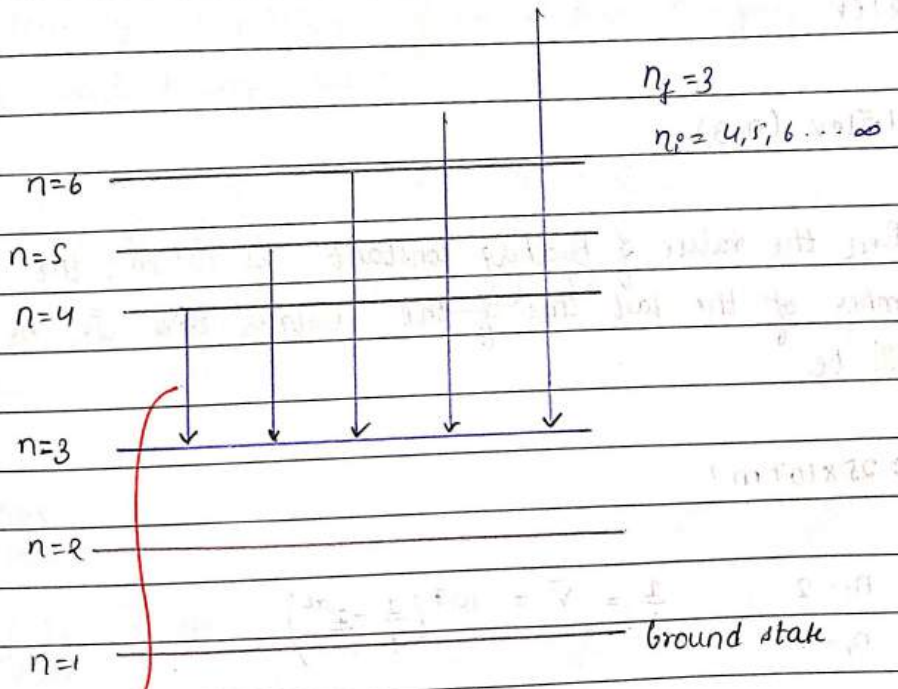 n_f = 3
n_i = 4, 5, 6 ... ∞
n=6
n=5
n=4
n=3
n=2
n=1
Ground state